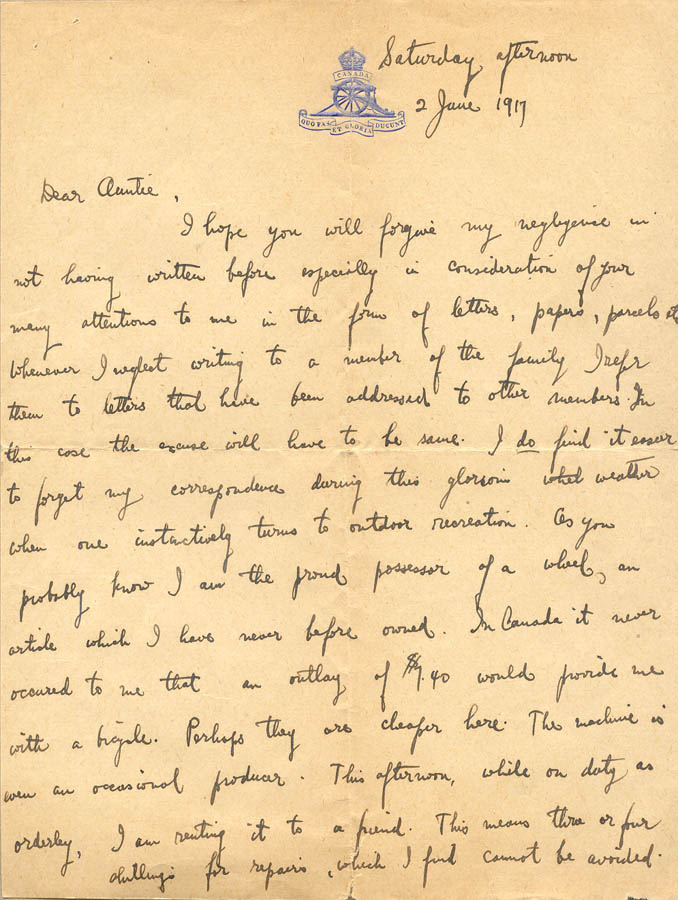 Saturday afternoon
CANADA
2 June 1917
QUO FAS ET GLORIA DUCUNT
Dear Auntie,
I hope you will forgive my neglygence in
not having written before especially in consideration of your
many attentions to me in the form of letters, papers, parcels etc
Whenever I neglect writing to a member of the family I refer
them to letters that have been addressed to other members. In
this case the excuse will have to be same. I do find it easier
to forget my correspondence during this glorious whet weather
when one instinctively turns to outdoor recreation. As you
probably know I am the proud possessor of a wheel, an
article which I have never before owned. In Canada it never
occured to me that an outlay of $7.40 would provide me
with a bicycle. Perhaps they are cheaper here. The machine is
even an occasional producer. This afternoon, while on duty as
orderley, I am renting it to a friend. This means three or four
shillings for repairs, which I find cannot be avoided.